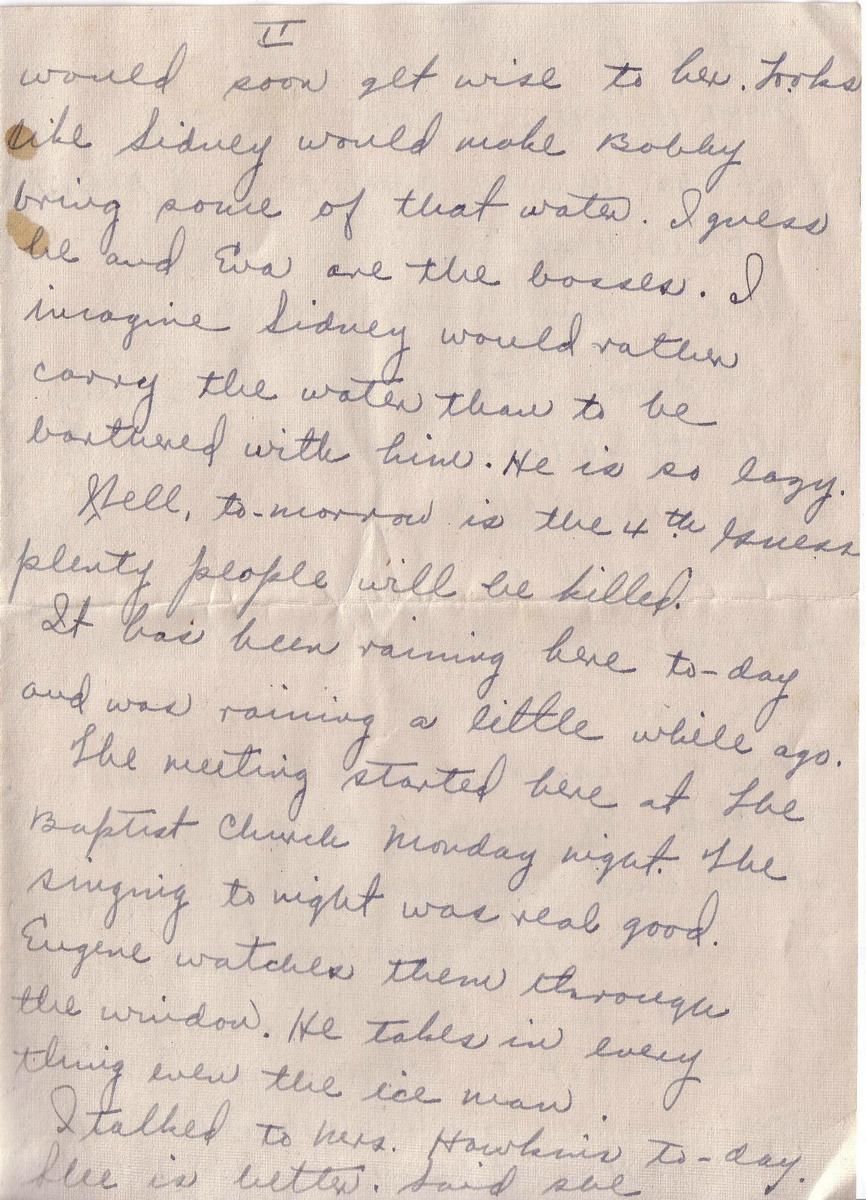 II
would soon get wise to her. Looks
like Sidney would make Bobby
bring some of that water. I guess
he and Eva are the bosses. I
imagine Sidney would rather
carry the water than to be
borthered with him. He is so lazy.
Well, to-morrow is the 4th Guess
plenty people will be killed.
It has been raining here to-day
and was raining a little while ago.
The meeting started here at the
Baptist Church Monday night. The
singing to night was real good.
Eugene watches them through
the window. He takes in every
thing even the ice man.
I talked to Mrs. Hawkins to-day.
She is better. Said she